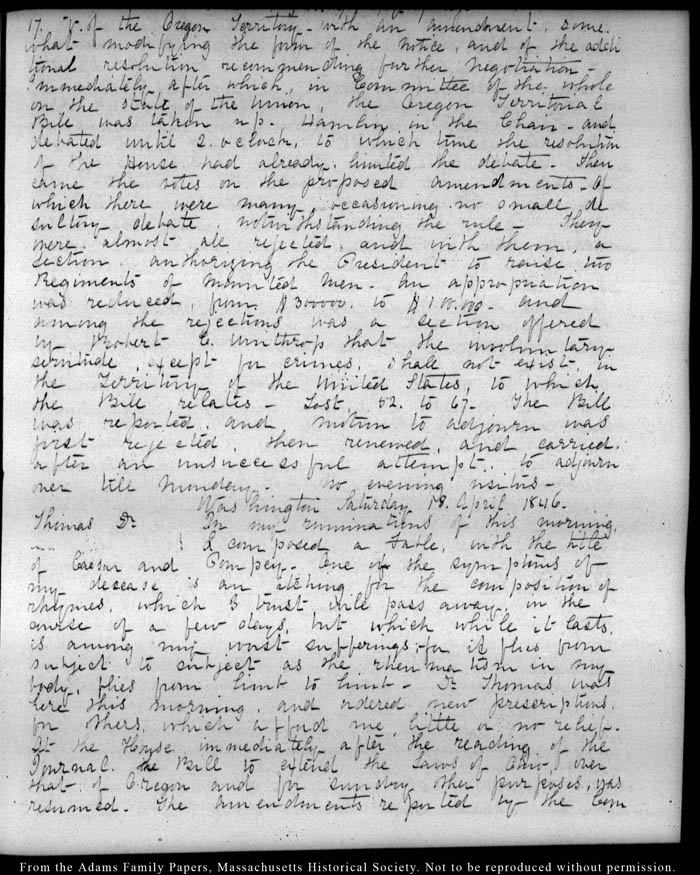 17. V. of the Oregon Territory - with an amendment, some
what modifying the form of the notice, and of the addi
tional resolution recommending further negotiation -
Immediately after which, in Committee of the whole
on the state of the Union, the Oregon Territorial
Bill was taken up. Hamlin in the Chair - and
debated until 2. oclock, to which time the resolution
of the House had already limited the debate - Then
came the votes on the proposed amendments - Of
which there were many, occasioning no small de
sultory debate, notwithstanding the rule - They
were almost all rejected, and with them, a
Section authorizing the President to raise two
Regiments of mounted men - An appropriation
was reduced from $300000. to $100.000 - and
among the rejections was a section offered
by Robert C. Winthrop that the involuntary
servitude, except for crimes, shall not exist in
the Territory of the United States, to which
the Bill relates - Lost, 52. to 67. The Bill
was reported, and motion to adjourn was
first rejected, then renewed, and carried.
after an unsuccessful attempt to adjourn
over till Monday - No evening visitors -
Washington Saturday 18. April 1846.
Thomas Dr In my ruminations of this morning,
I composed a Fable, with the title
of Caesar and Pompey - One of the symptoms of
my disease is an itching for the composition of
rhymes, which I trust will pass away in the
course of a few days, but which while it lasts,
is among my worst sufferings; for it flies from
subject to subject as the rheumatism in my
body, flies from limb to limb - Dr Thomas was
here this morning, and ordered new prescriptions
for others, which afford me little or no relief -
At the House, immediately after the reading of the
Journal. the Bill to extend the Laws of over
that of Oregon and for sundry other purposes, was
resumed. The amendments reported by the Com
From the Adams Family Papers, Massachusetts Historical Society. Not to be reproduced without permission.